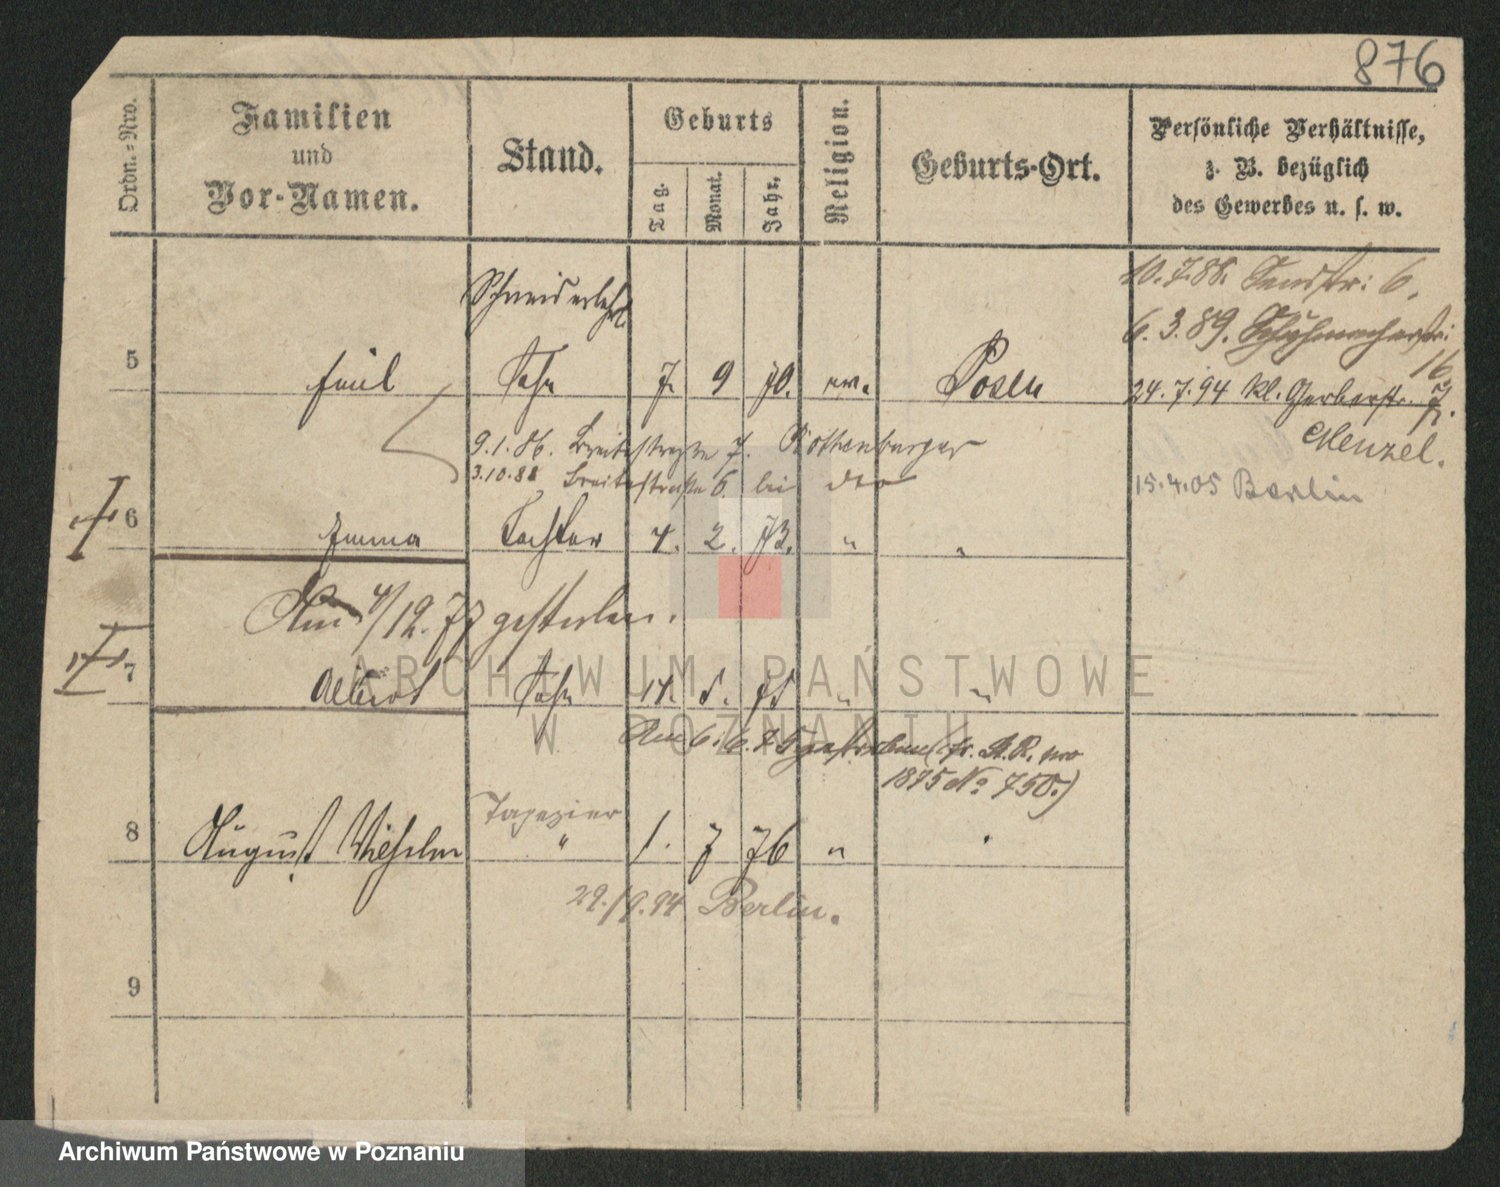 876
Ordn.=Nro.
Familien
und
Vor-Namen.
Stand.
Geburts
Tag.
Monat.
Jahr.
Religion.
Geburts-Ort.
Persönliche Verhältnisse,
z. B. bezüglich
des Gewerbes u. s. w.
10.7.88. 6.
Schneiderlehrl
6.3.89. Schuhmacherstr:
16
5 Emil Sohn 7. 9 70. ev. Posen
24.7.94 kl. Gerberstr.
Menzel.
9.1.86. Breitestrasse 7. Rothenburger
3.10.88 Breitestrasse 6. bei dto
15.4.05 Berlin
6 Emma Tochter 4. 2. 73. " "
Am 4/12.77 gestorben.
7 Albert Sohn 14. 5. 75 " "
Am 6. 6. 75 gestorben (fr. A.R. pro
1875 No 750.)
Tapezier
8 August Wilhelm " 1. 7 76 "
29./9.94 Berlin.
9
ARCHIWUM PAŃSTWOWE
W POZNANIU
Archiwum Państwowe w Poznaniu